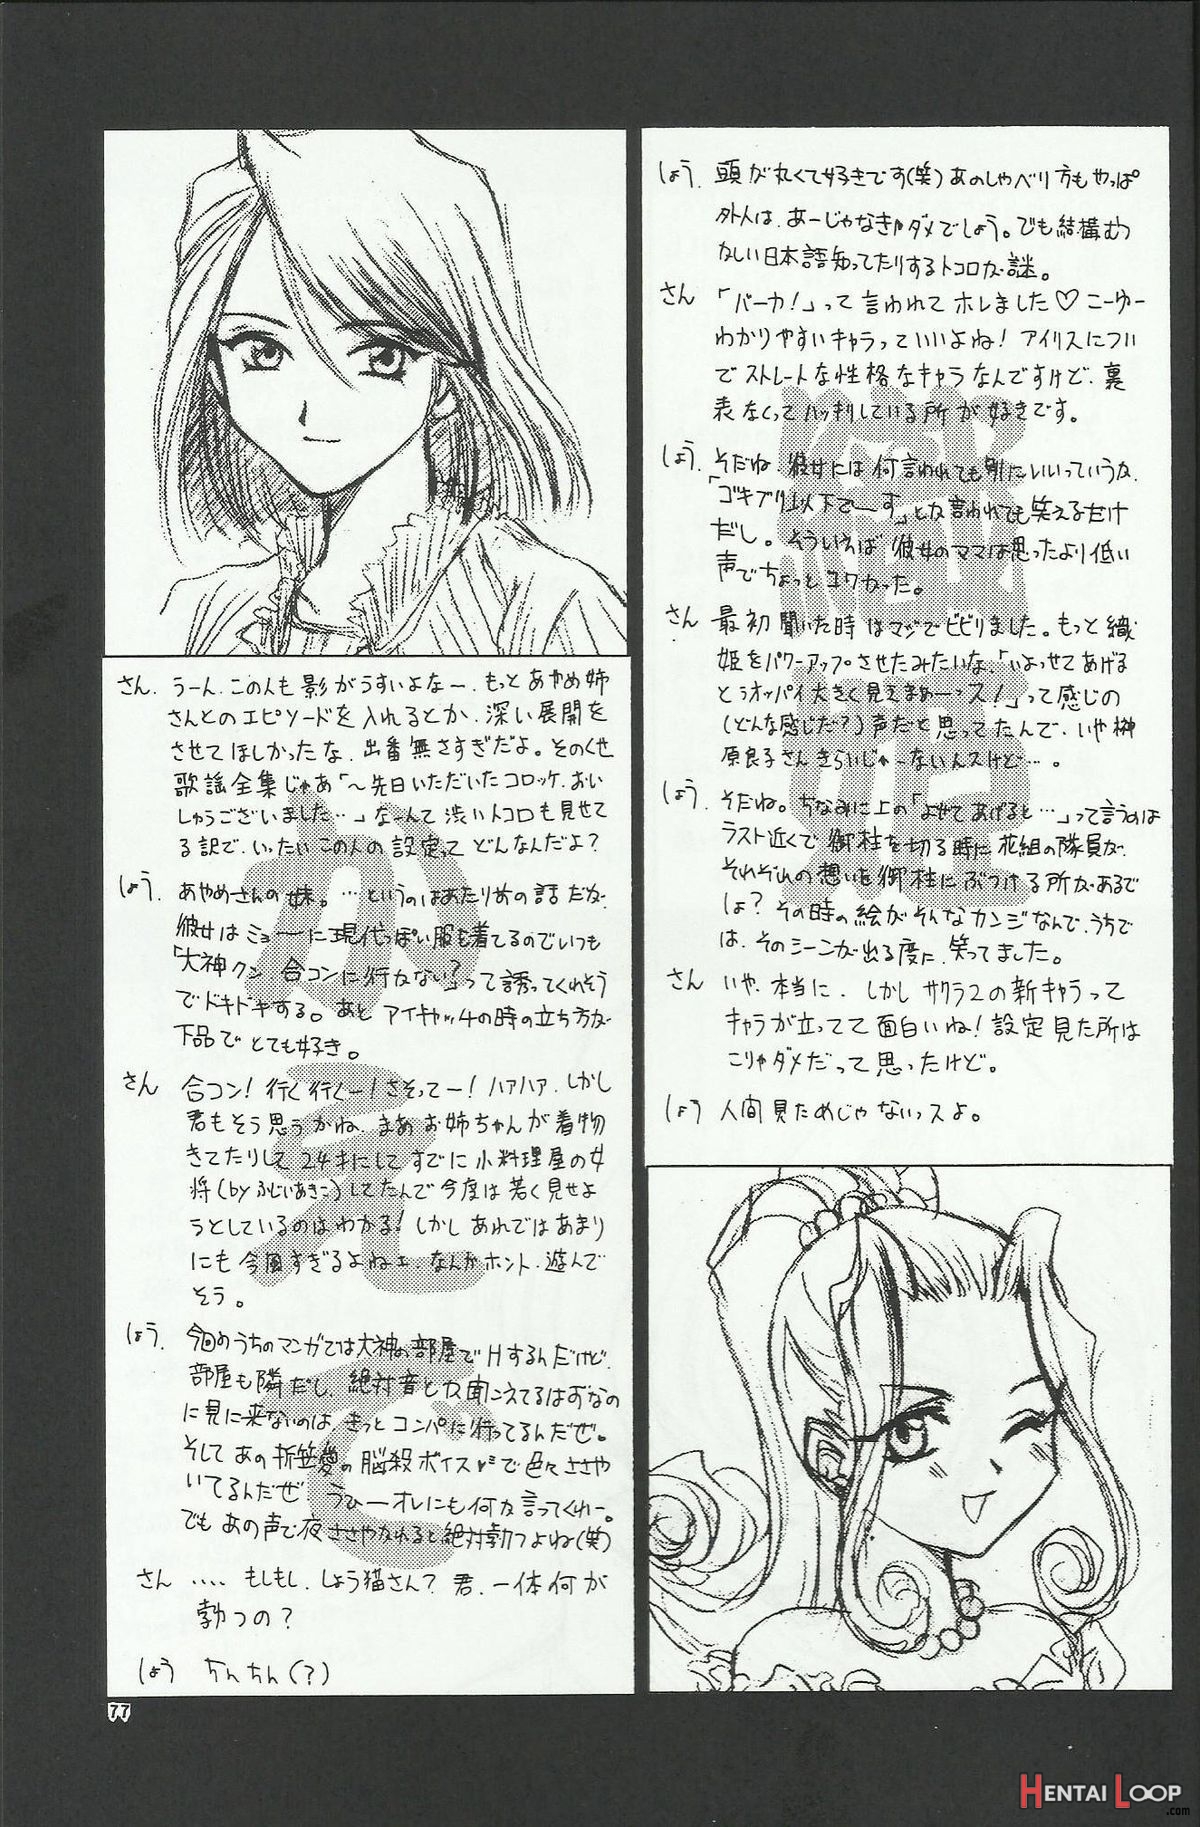 しょう. 頭が丸くて好きです(笑)あのしゃべり方もやっぱ
外人は、あーじゃなきゃダメでしょう。でも結構むつ
かしい日本語知ってたりするトコロが謎。
さん 「バーカ!」って言われてホレました♡こーゆー
わかりやすいキャラっていいよね!アイリスについ
でストレートな性格なキャラなんですけど、裏
表なくってハッキリしている所が好きです。
しょう. そだね、彼女には何言われても別にいいっていうか、
「ゴキブリ以下でーす」とか言われても笑えるだけ
だし。そういえば彼女のママは思ったより低い
声でちょっとコワかった。
さん 最初聞いた時はマジでビビりました。もっと織
姫をパワーアップさせたみたいな、「いよっせてあげる
とぅオッパイ大きく見えまぁーっス!」って感じの
(どんな感じだ?)声だと思ってたんで、いや榊
原良子さんきらいじゃーないんスけど…。
しょう. そだね。ちなみに上の「よせてあげると…」って言うのは
ラスト近くで御柱を切る時に花組の隊員が、
それぞれの想いを御柱にぶつける所があるで
しょ?その時の絵がそんなカンジなんで、うちで
は、そのシーンが出る度に、笑ってました。
さん いや、本当に、しかしサクラ2の新キャラって
キャラが立ってて面白いね!設定見た所は
こりゃダメだって思ったけど。
しょう 人間見ためじゃないっスよ。
さん. うーん、この人も影がうすいよなー、もっとあやめ姉
さんとのエピソードを入れるとか、深い展開を
させてほしかったな、出番無さすぎだよ。そのくせ
歌謡全集じゃあ「〜先日いただいたコロッケ、おい
しゅうございました…」なーんて渋いトコロも見せて
る訳で、いったいこの人の設定ってどんなんだよ?
しょう. あやめさんの妹。…というのはあたり前の話だが、
彼女はミョーに現代っぽい服を着てるのでいつも
「大神クン 合コンに行かない?」って誘ってくれそう
でドキドキする。あと アイキャッチの時の立ち方が
下品で とても好き。
さん 合コン!行く行くー!さそってー!ハァハァ、しかし
君もそう思うかね、まあお姉ちゃんが着物
きてたりして24才にしてすでに小料理屋の女
将(byふじいあきこ)してたんで今度は若く見せよ
うとしているのはわかる!しかしあれではあまり
にも今風すぎるよねェ、なんかホント、遊んで
そう。
しょう. 今回のうちのマンガでは大神の部屋でHするんだけど、
部屋も隣だし、絶対音とか聞こえてるはずなの
に見に来ないのは、きっとコンパに行ってるんだぜ。
そしてあの折笠愛の脳殺ボイスで色々ささや
いてるんだぜ うひーオレにも何か言ってくれー。
でもあの声で夜ささやかれると絶対勃つよね(笑)
さん ‥‥もしもし、しょう猫さん?君、一体何が
勃つの?
しょう ちんちん(?)
かえで
織姫
77
HENTAI LOOP
.com